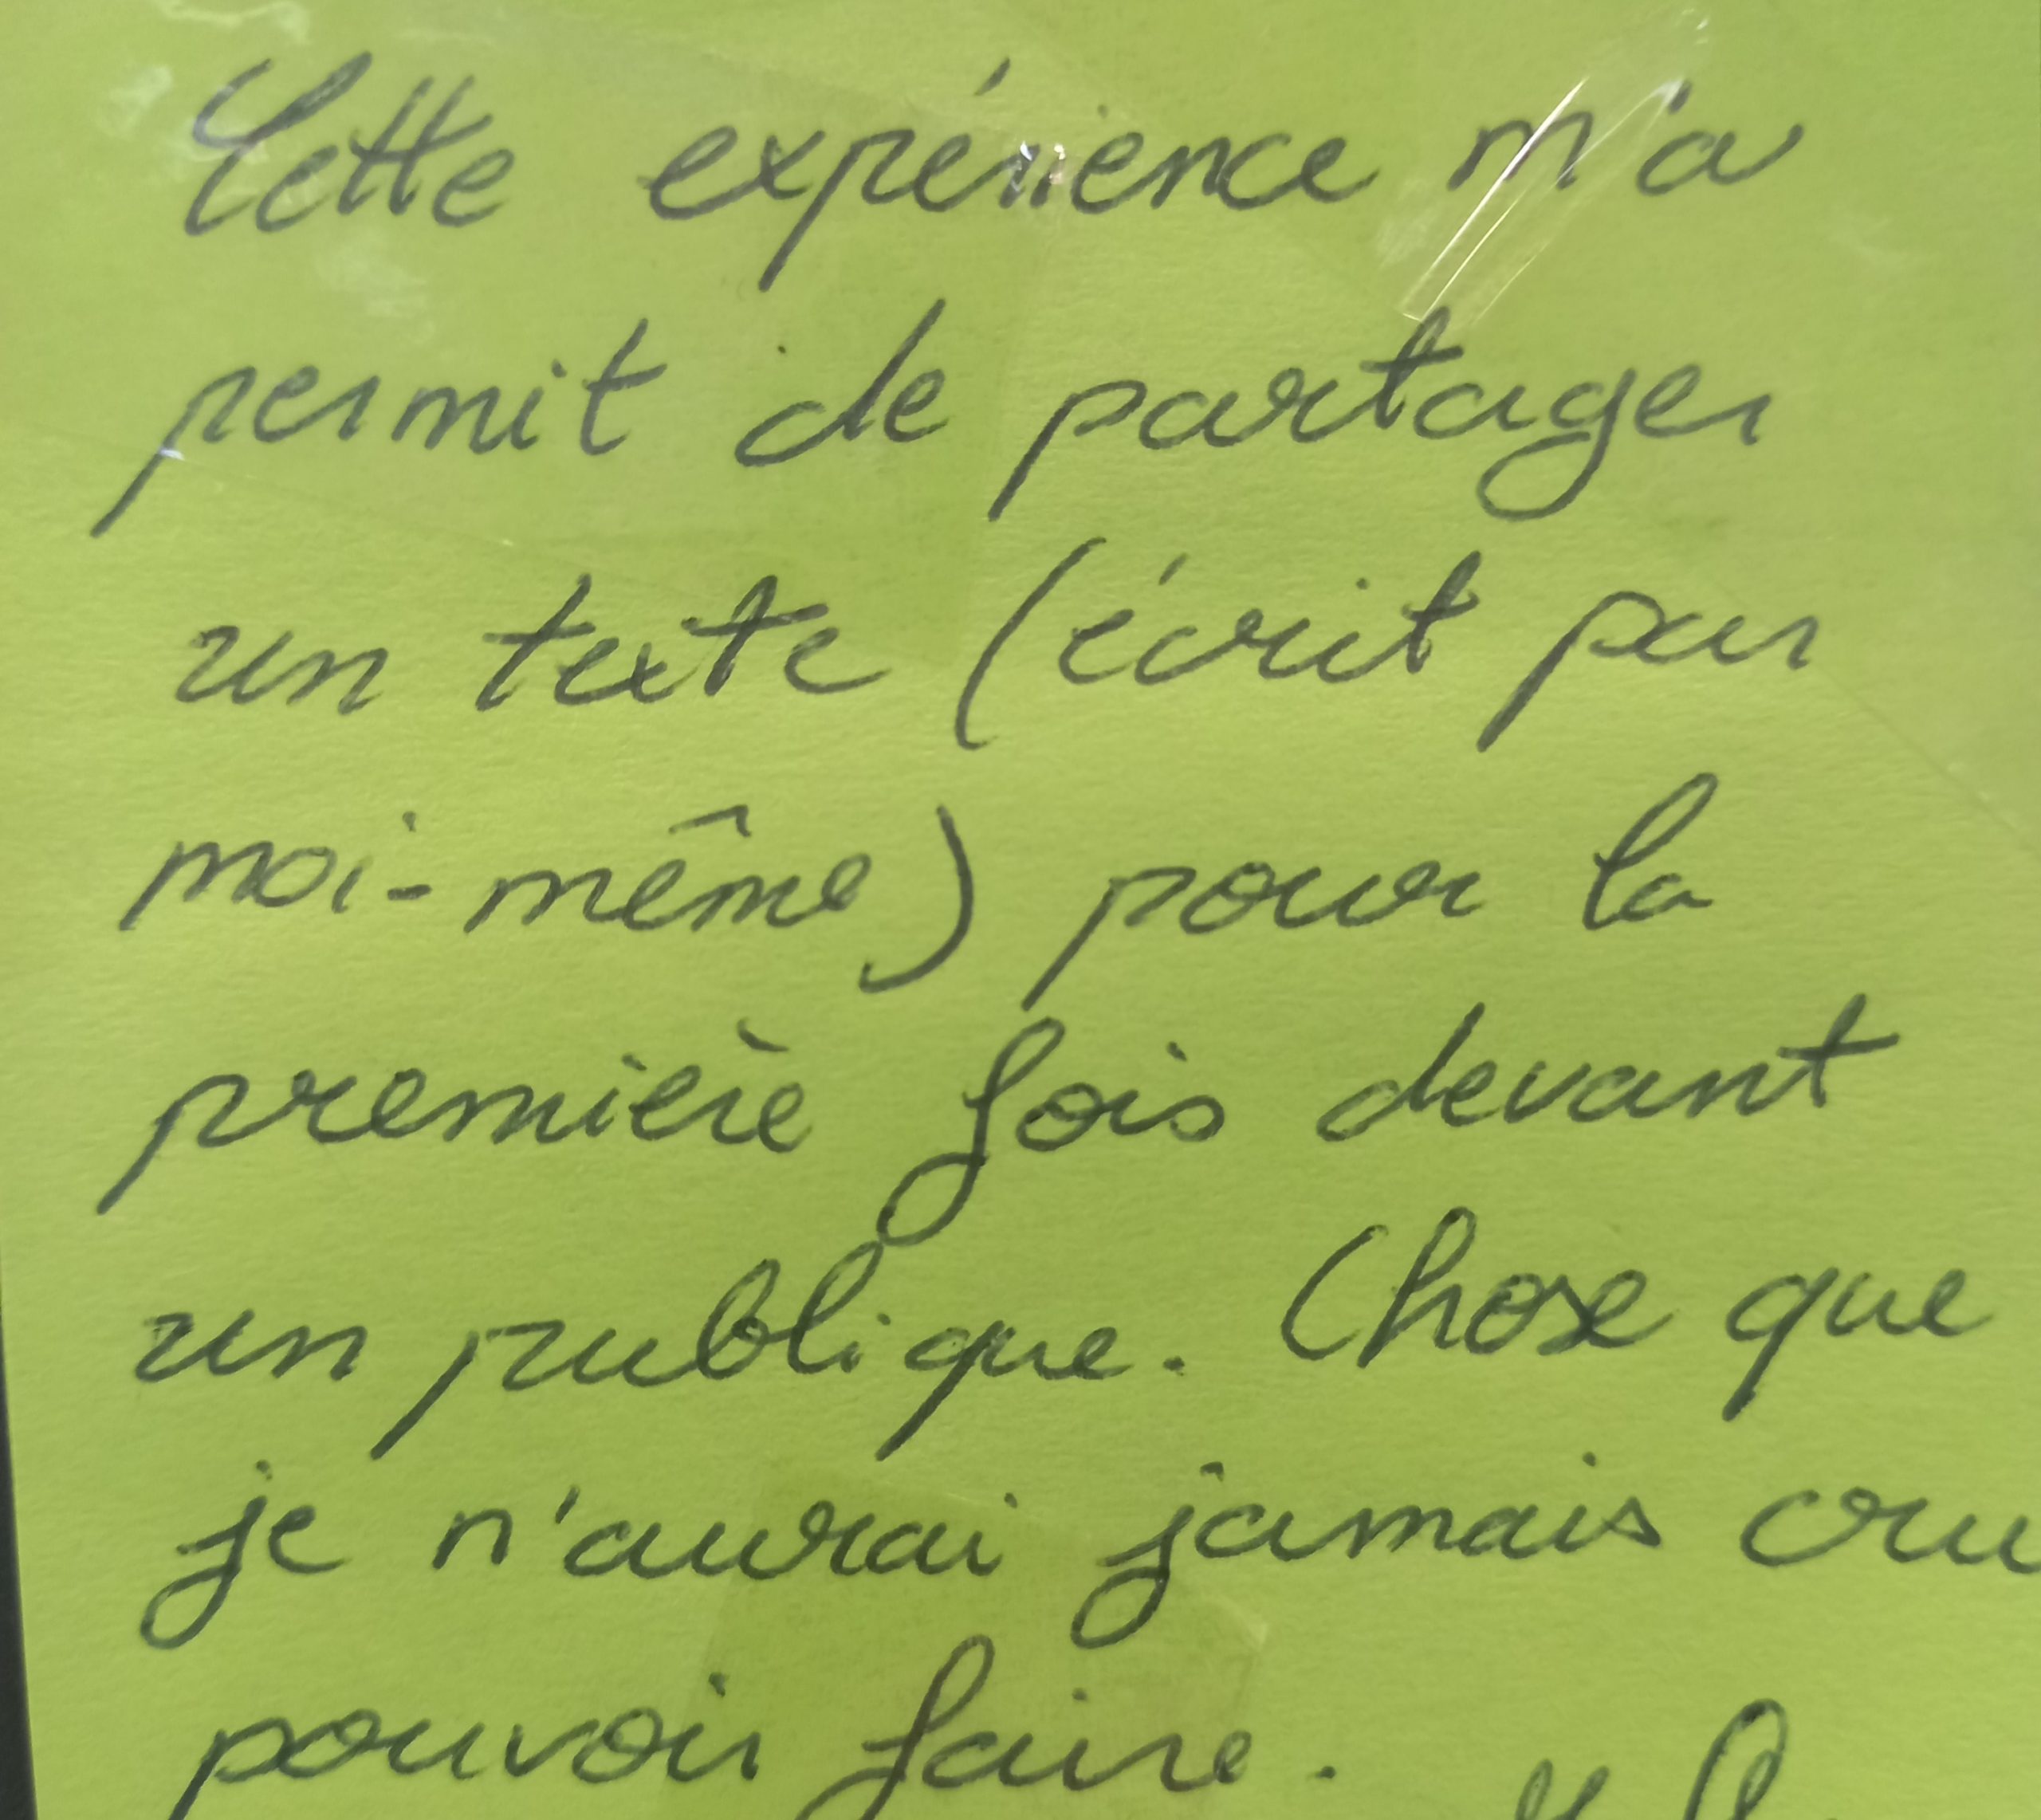 Cette expérience m'a
permit de partager
un texte (écrit par
moi-même) pour la
première fois devant
un publique. Chose que
je n'aurai jamais cru
pouvoir faire.